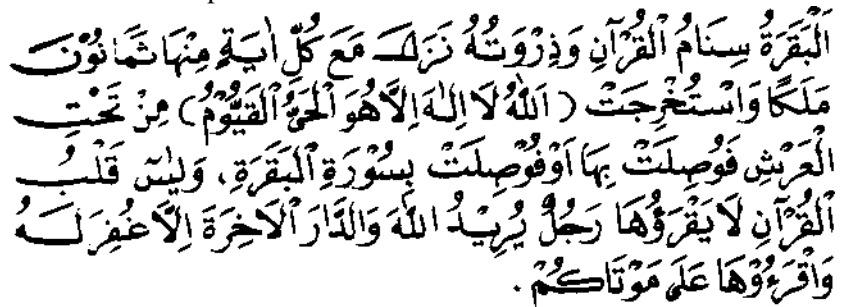 اَلْبَقَرَةُ سِنَامُ الْقُرْآنِ وَذِرْوَتُهُ نَزَلَ مَعَ كُلِّ اٰيَةٍ مِنْهَا ثَمَانُوْنَ
مَلَكًا وَاسْتُخْرِجَتْ ( اَللّٰهُ لَا اِلٰهَ اِلَّا هُوَ الْحَيُّ الْقَيُّوْمُ ) مِنْ تَحْتِ
الْعَرْشِ فَوُصِلَتْ بِهَا اَوْ فَوُصِلَتْ بِسُوْرَةِ الْبَقَرَةِ، وَيٰسٓ قَلْبُ
الْقُرْآنِ لَا يَقْرَؤُهَا رَجُلٌ يُرِيْدُ اللّٰهَ وَالدَّارَ الْاٰخِرَةَ اِلَّا غُفِرَ لَهُ
وَاقْرَءُوْهَا عَلَى مَوْتَاكُمْ .